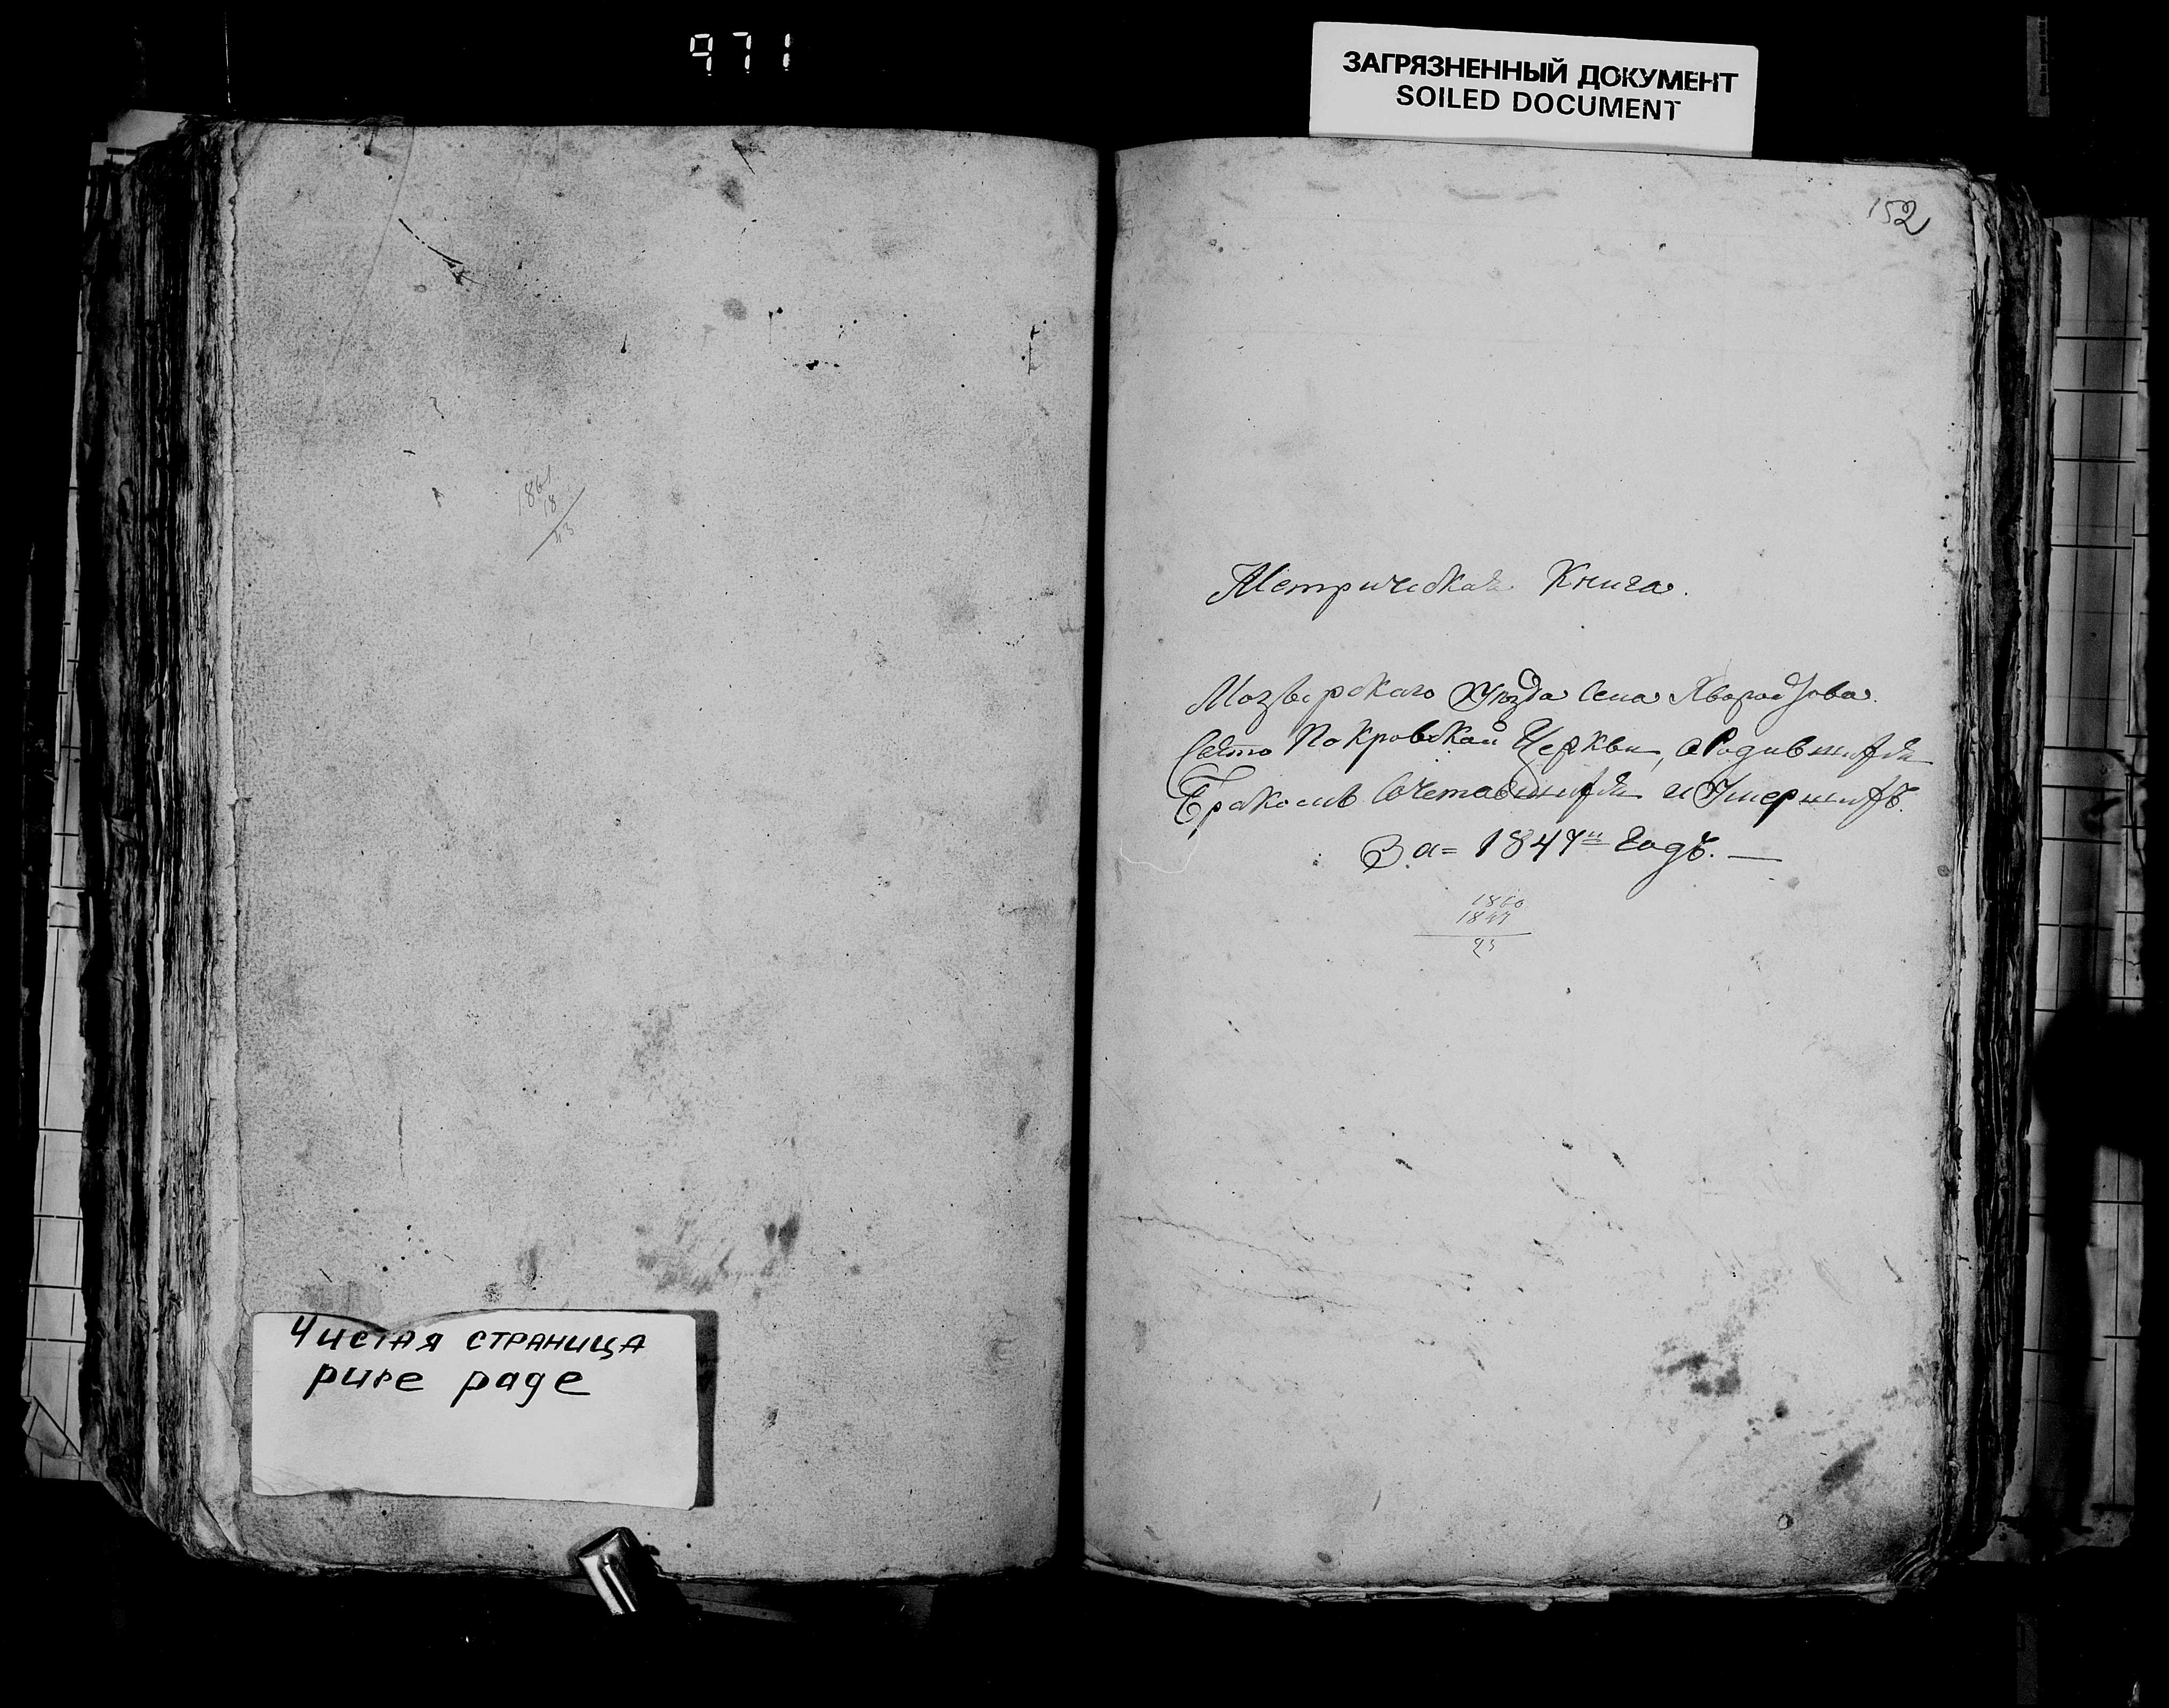 971
ЗАГРЯЗНЕННЫЙ ДОКУМЕНТ
SOILED DOCUMENT
1861
18
43
Чистая страница
pure page
152
Метрическая Книга.
Мозырскаго Уѣзда Села
Свято Покровской Церкви, о Родившихся
Бракомъ Сочетавшихся и Умершихъ.
За = 1847й Годъ. —
1860
1847